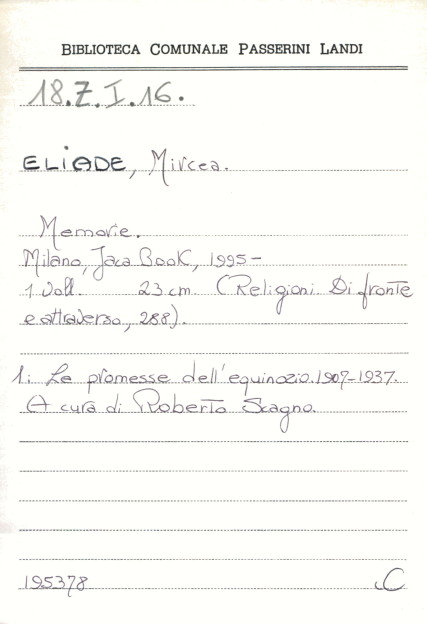 BIBLIOTECA COMUNALE PASSERINI LANDI
18.Z.I.16.
ELIADE, Mircea.
Memorie.
Milano, Jaca Book, 1995-
1 Voll. 23 cm. (Religioni. Di fronte
e attraverso, 288).
1: Le promesse dell'equinozio. 1907-1937.
A cura di Roberto Scagno.
195378 C